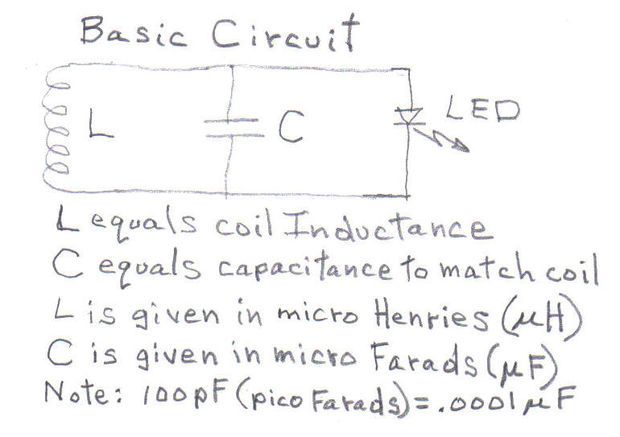 Basic Circuit
L
C
LED
L equals coil Inductance
C equals capacitance to match coil
L is given in micro Henries (μH)
C is given in micro Farads (μF)
Note: 100pF (pico Farads)= .0001 μF